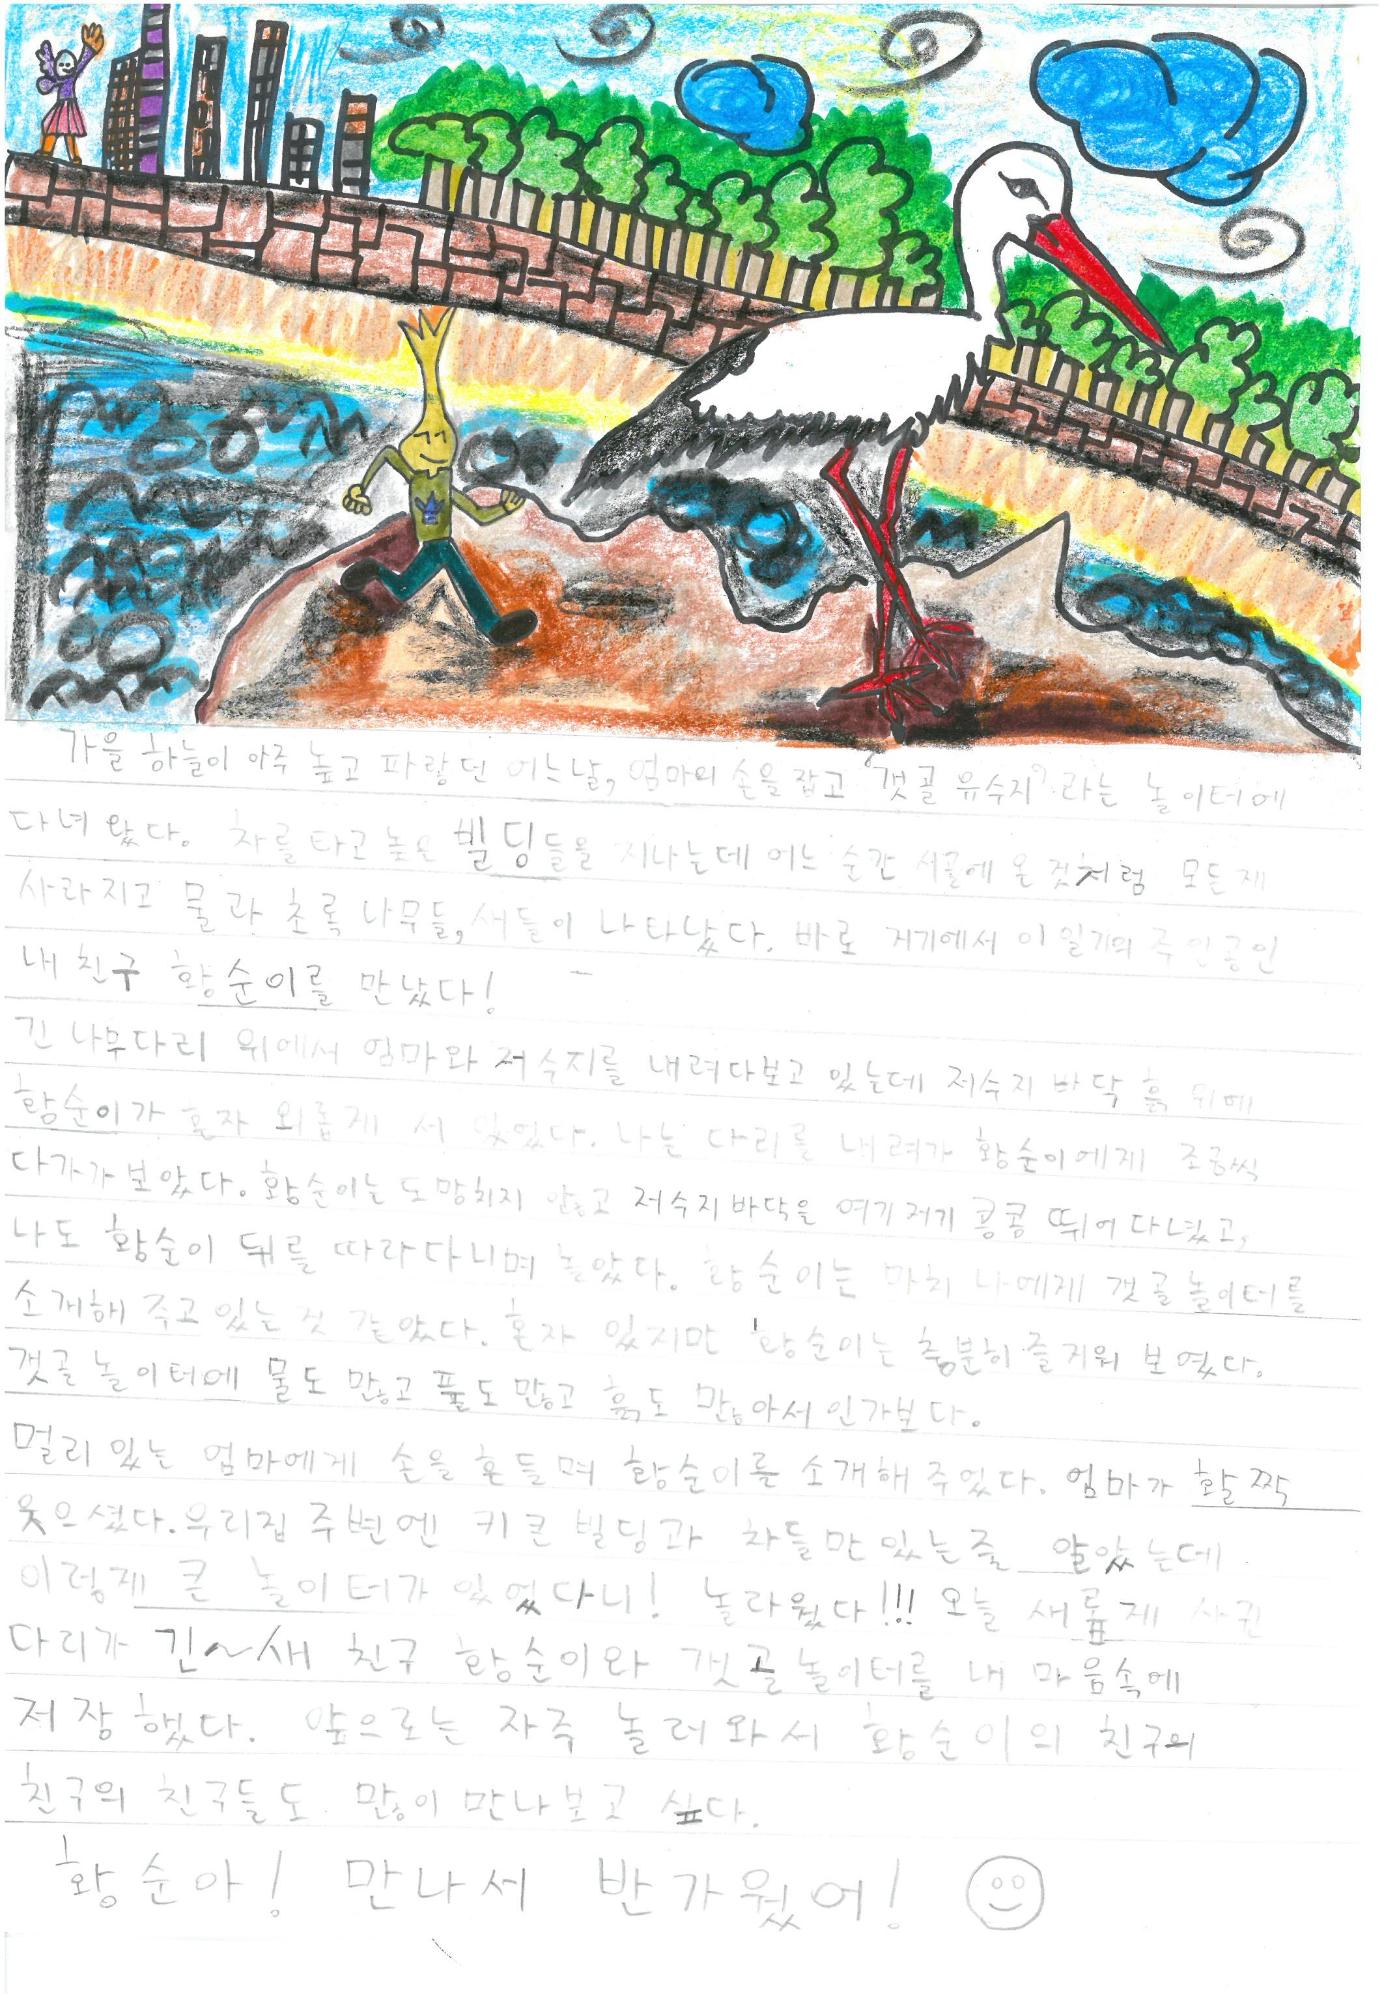 가을 하늘이 아주 높고 파랗던 어느날, 엄마의 손을 잡고 "갯골 유수지"라는 놀이터에
다녀 왔다. 차를 타고 높은 빌딩들을 지나는데 어느 순간 시골에 온것처럼 모든게
사라지고 물과 초록 나무들, 새들이 나타났다. 바로 거기에서 이 일기의 주인공인
내 친구 황순이를 만났다!
긴 나무다리 위에서 엄마와 저수지를 내려다보고 있는데 저수지 바닥 흙 위에
황순이가 혼자 외롭게 서 있었다. 나는 다리를 내려가 황순이에게 조금씩
다가가 보았다. 황순이는 도망치지 않고 저수지 바닥을 여기저기 콩콩 뛰어 다녔고,
나도 황순이 뒤를 따라다니며 놀았다. 황순이는 마치 나에게 갯골놀이터를
소개해 주고 있는 것 같았다. 혼자 있지만 황순이는 충분히 즐거워 보였다.
갯골 놀이터에 물도 많고 풀도 많고 흙도 많아서인가보다.
멀리 있는 엄마에게 손을 흔들며 황순이를 소개해 주었다. 엄마가 활짝
웃으셨다. 우리집 주변엔 키큰 빌딩과 차들만 있는줄 알았는데
이렇게 큰 놀이터가 있었다니! 놀라웠다!!! 오늘 새롭게 사귄
다리가 긴~새 친구 황순이와 갯골놀이터를 내 마음속에
저장했다. 앞으로는 자주 놀러와서 황순이의 친구의
친구의 친구들도 많이 만나보고 싶다.
황순아! 만나서 반가웠어!